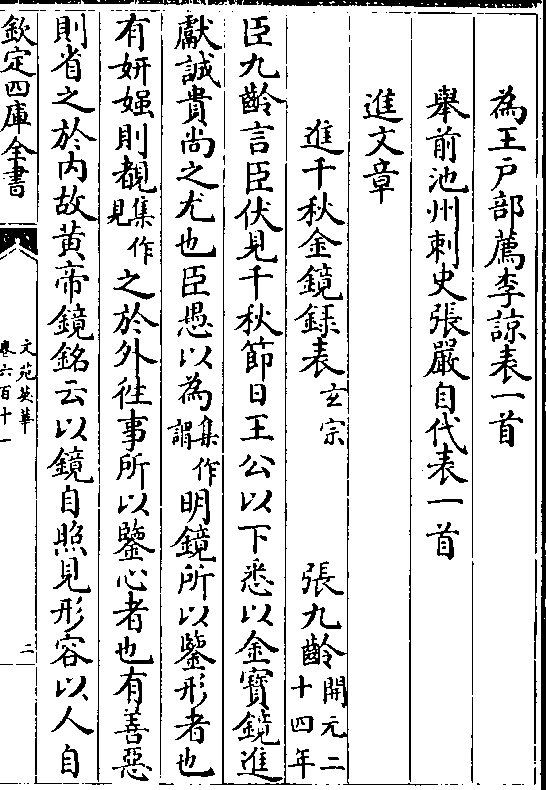 為王戸部薦李諒表一首
舉前池州刺史張嚴自代表一首
進文章
進千秋金鏡録表 玄宗 張九齡 開元二十四年
臣九齡言臣伏見千秋節日王公以下悉以金寶鏡進
獻誠貴尚之尤也臣愚以為集作謂明鏡所以鑒形者也
有妍媸則覩集作見之於外往事所以鑒心者也有善惡
則省之於内故黄帝鏡銘云以鏡自照見形容以人自
欽定四庫全書
文苑英華
卷六百十一
二